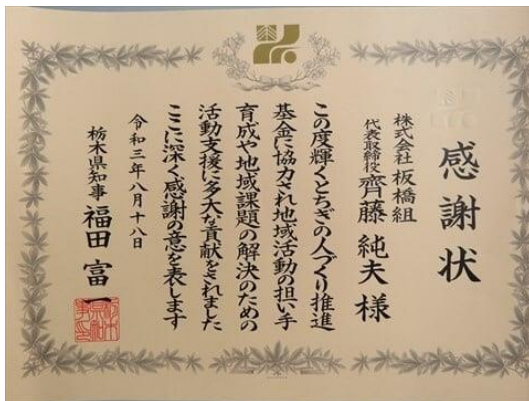 感謝状
株式会社 板橋組
代表取締役 齊藤 純夫 様
この度輝くとちぎの人づくり推進
基金に協力され地域活動の担い手
育成や地域課題の解決のための
活動支援に多大な貢献をされました
ここに深く感謝の意を表します
令和三年八月十八日
栃木県知事 福田 富一